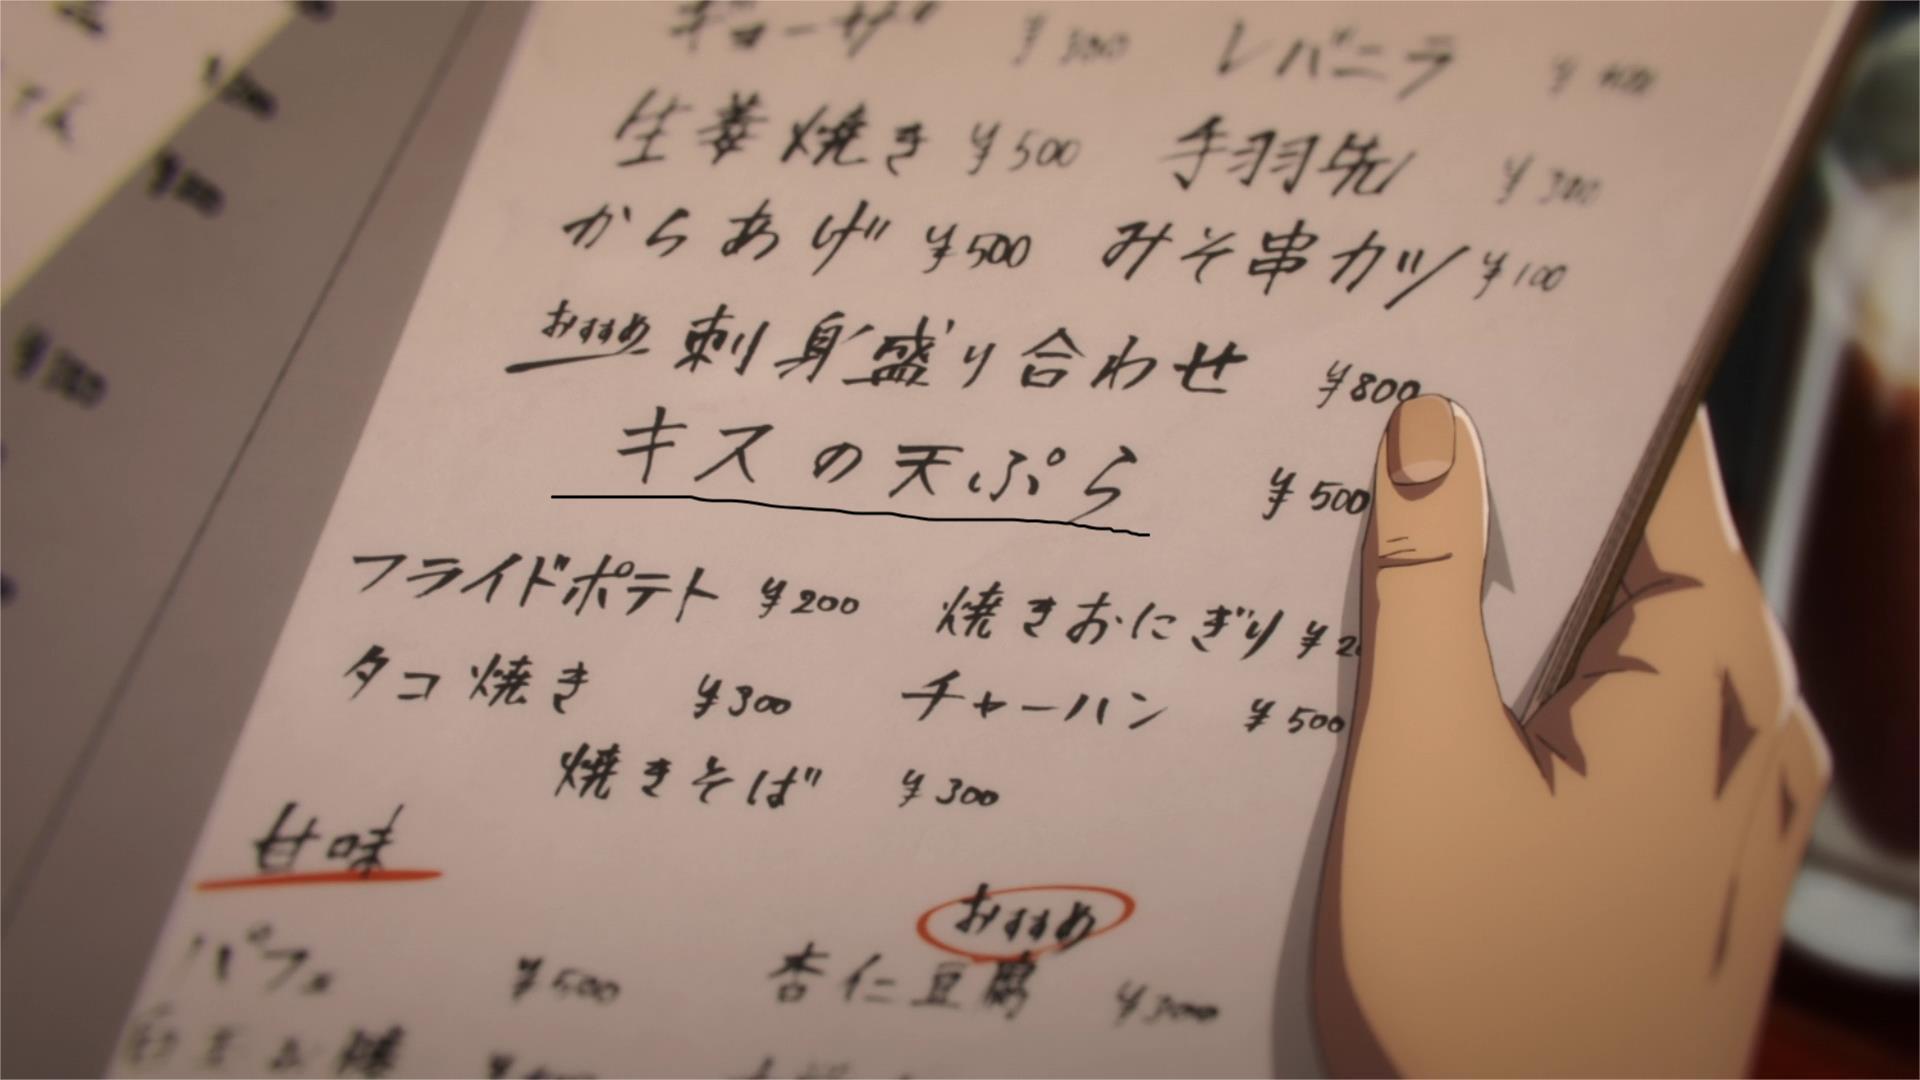 ギョーザ ¥300 レバニラ
生姜焼き ¥500 手羽先 ¥300
からあげ ¥500 みそ串カツ ¥100
おすすめ 刺身盛り合わせ ¥800
キスの天ぷら ¥500
フライドポテト ¥200 焼きおにぎり ¥2
タコ焼き ¥300 チャーハン ¥500
焼きそば ¥300
甘味
おすすめ
パフェ ¥500 杏仁豆腐 ¥300